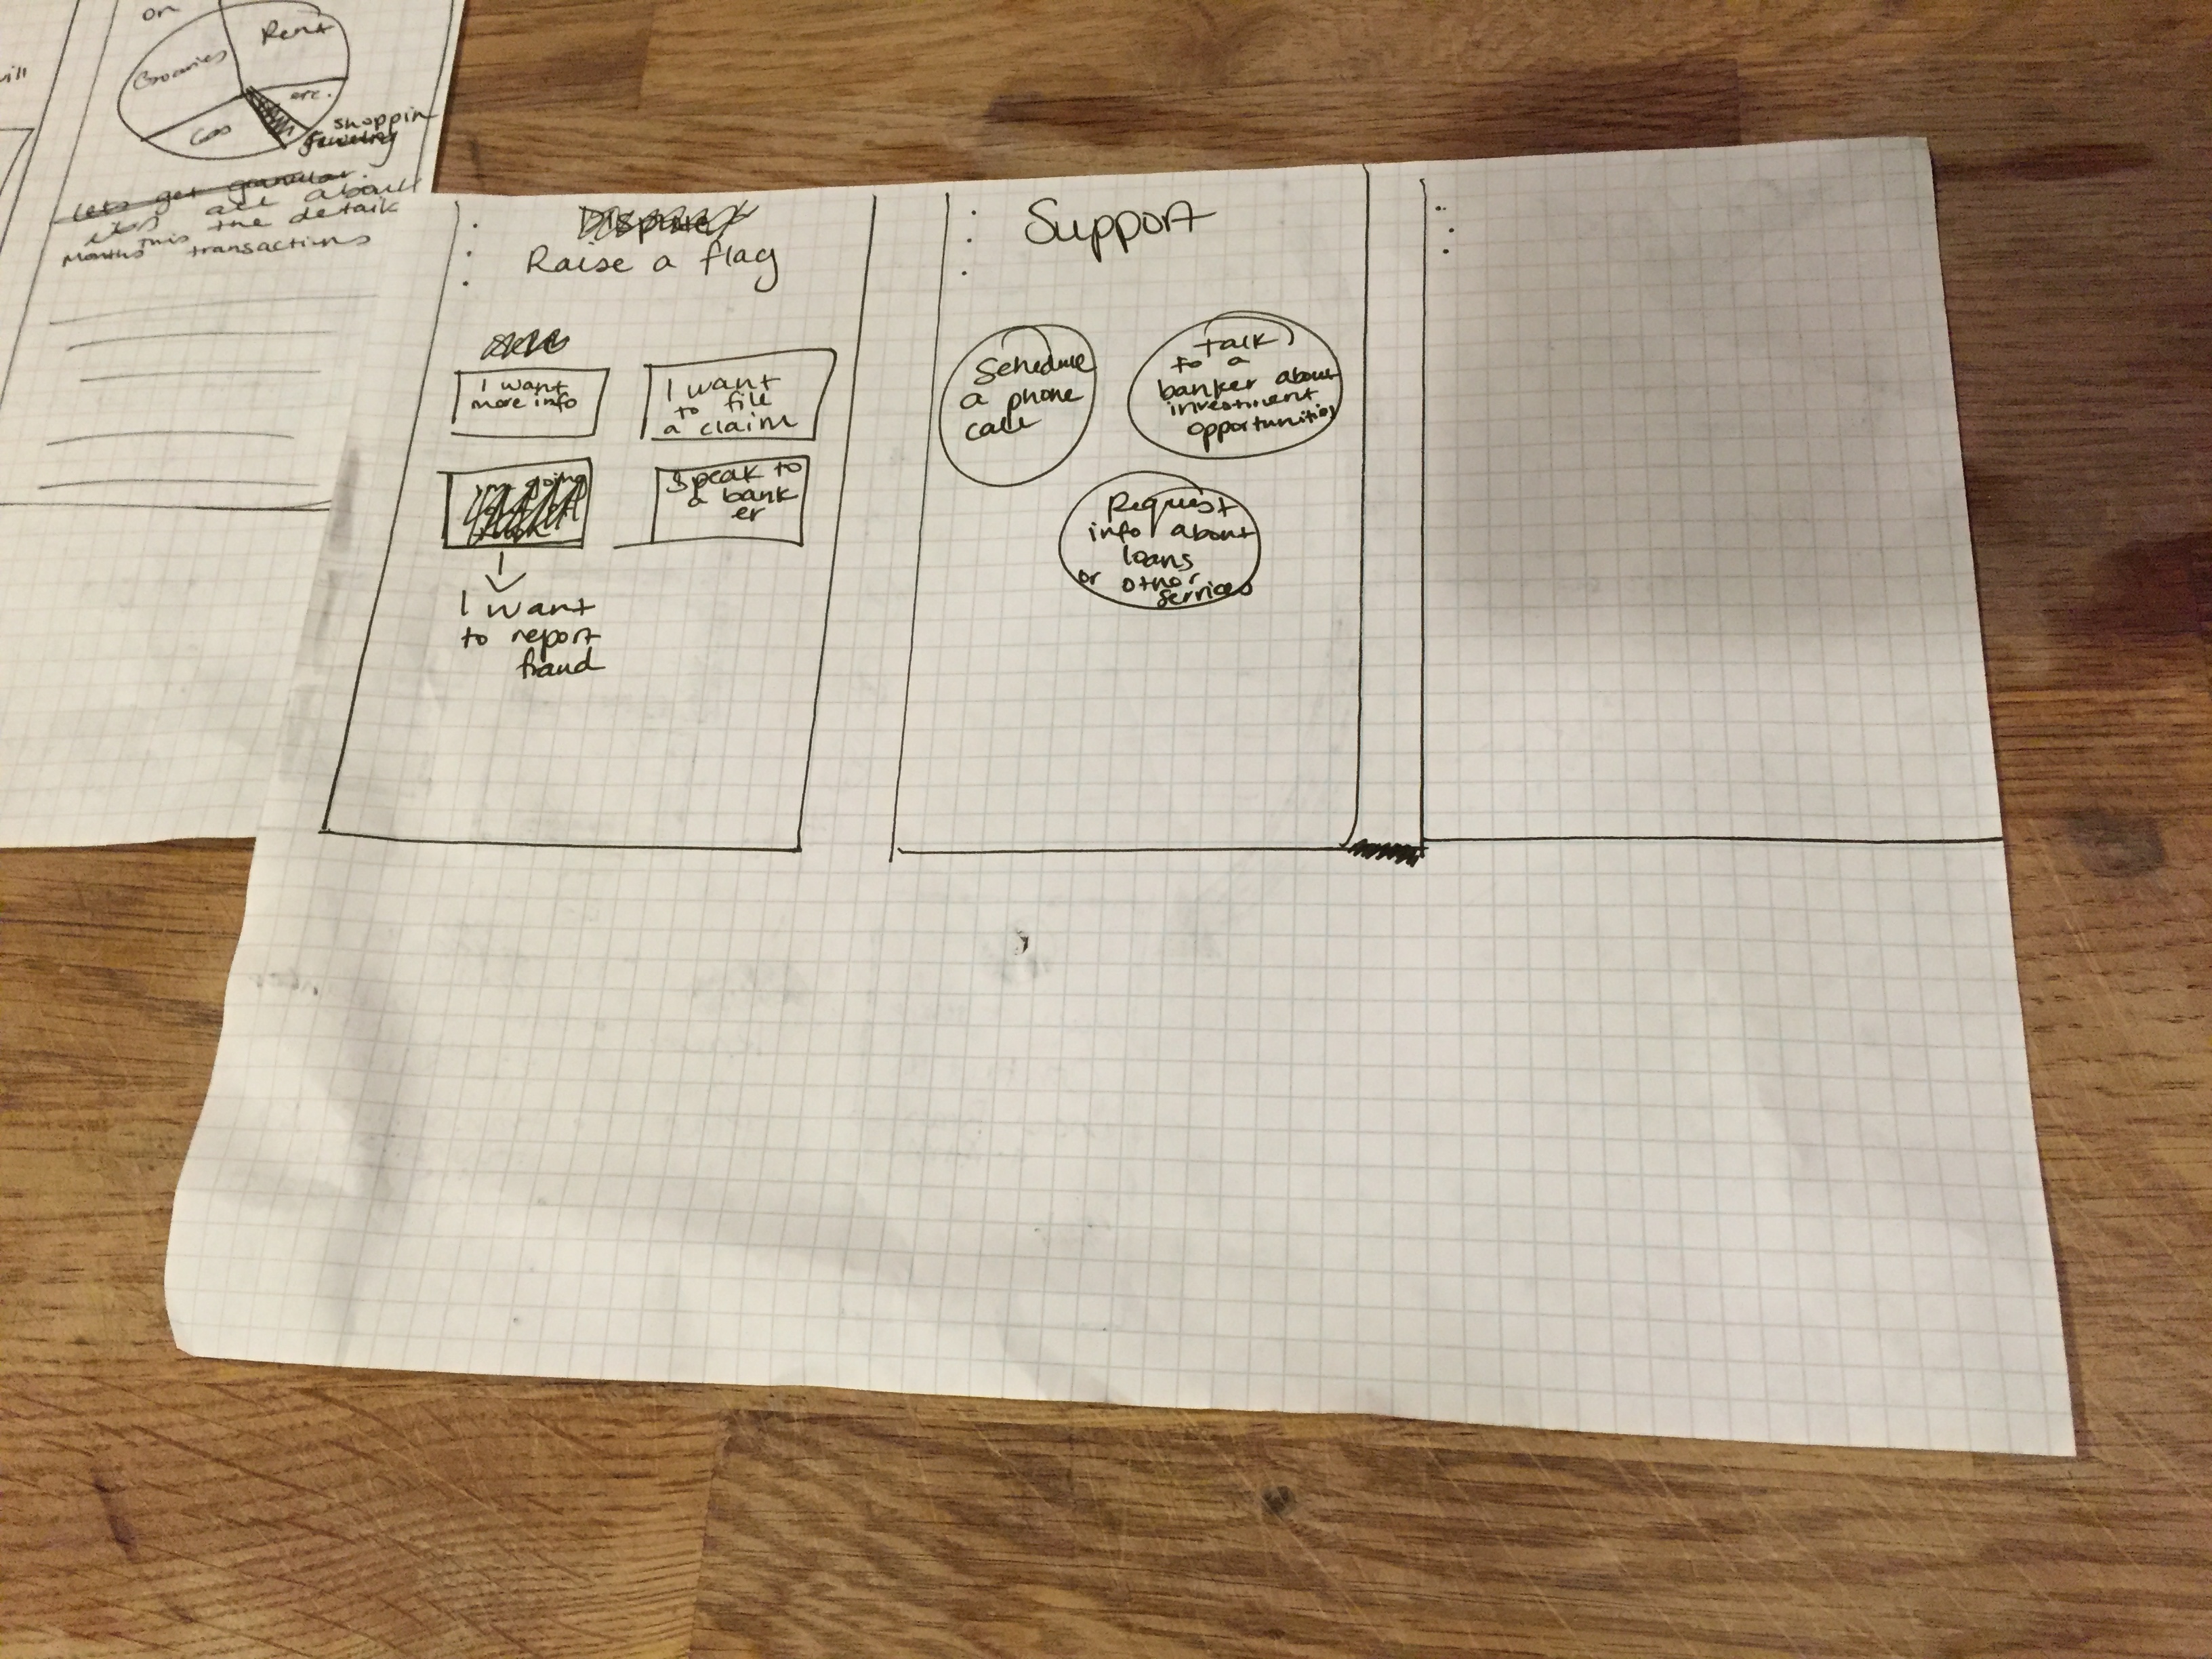 on
Rent
Groceries
etc.
Gas
shoppin
Jewelry
ill
Lets get granular.
all about
the details
this
months transactions
Dispute
Raise a flag
I want
more info
I want
to file
a claim
I'm going
Speak to
a bank
er
I want
to report
fraud
Support
Schedule
a phone
call
talk
to a
banker about
investment
opportunities
Request
info about
loans
or other
services